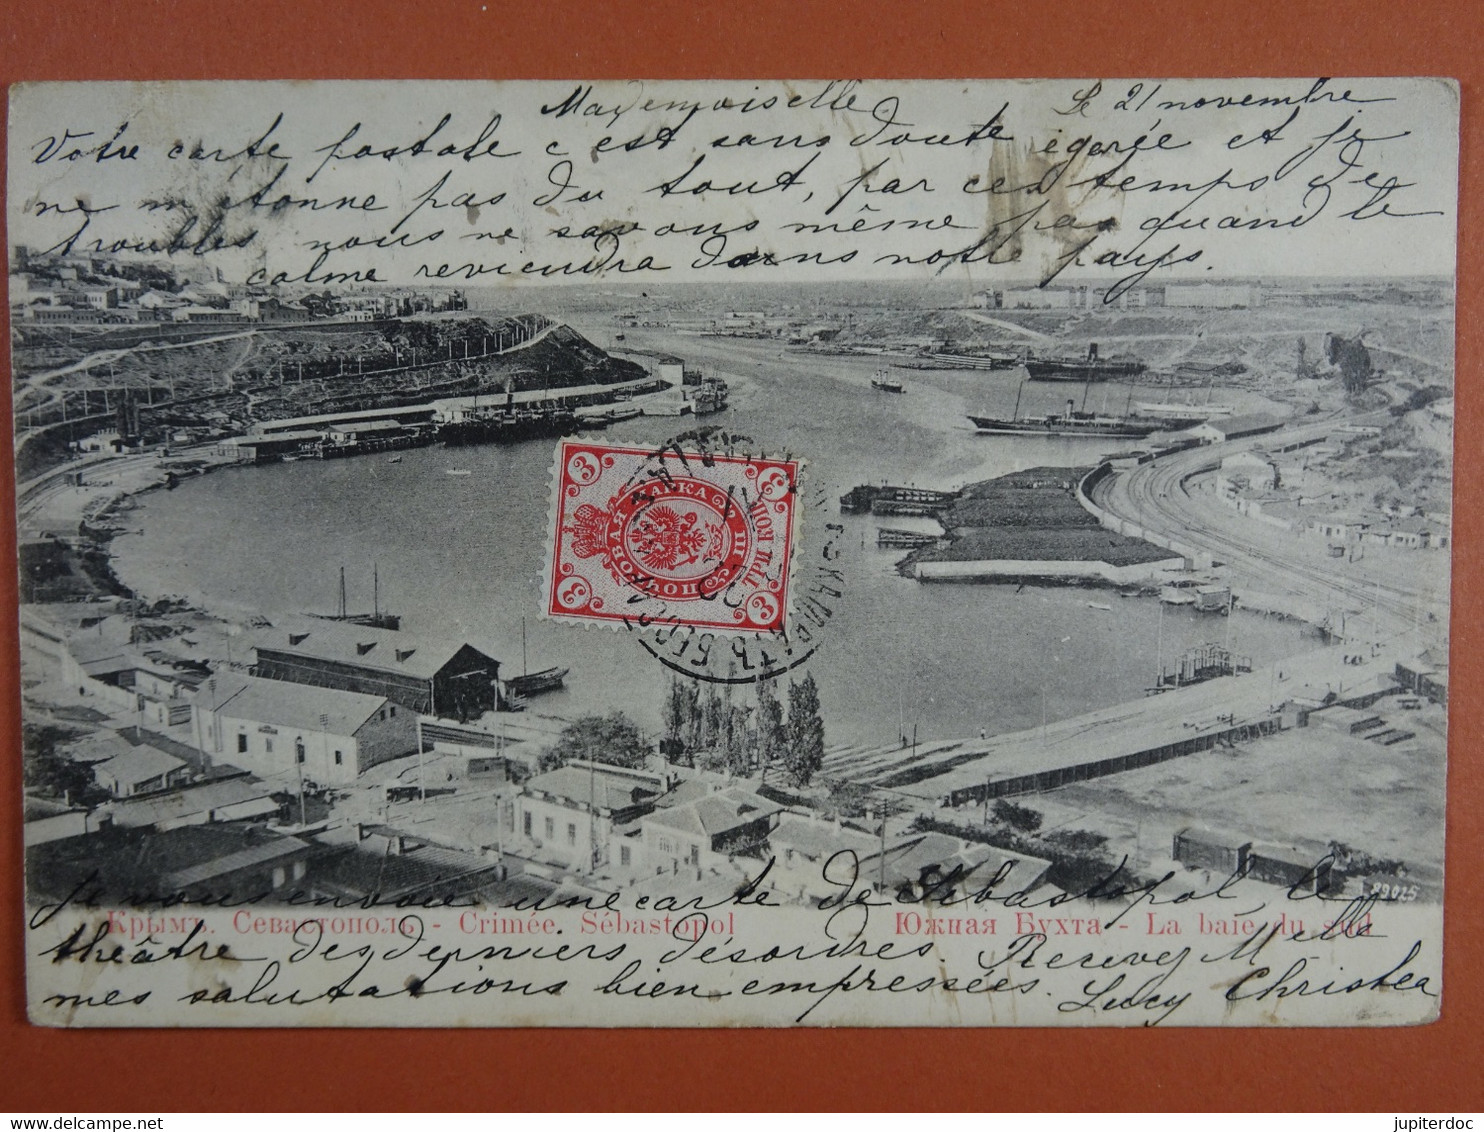 Mademoiselle. Le 21 novembre
Votre carte postale c est sans doute égarée et je
ne m étonne pas du tout, par ces temps de
troubles nous ne savons même pas quand le
calme reviendra dans notre pays.
3 3
МАРКА
ТРИ КОП.
3 3
Je vous envoie une carte de Sébastopol, le
Крымъ. Севастополь - Crimée. Sébastopol
Южная Бухта - La baie du sud
89025
théâtre des derniers désordres. Recevez Melle
mes salutations bien empressées. Lucy Christea
jupiterdoc
delcampe.net